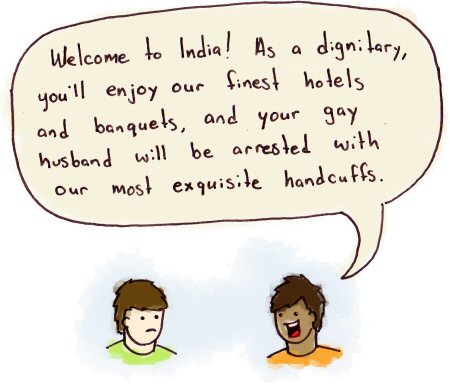 Welcome to India! As a dignitary,
you'll enjoy our finest hotels
and banquets, and your gay
husband will be arrested with
our most exquisite handcuffs.